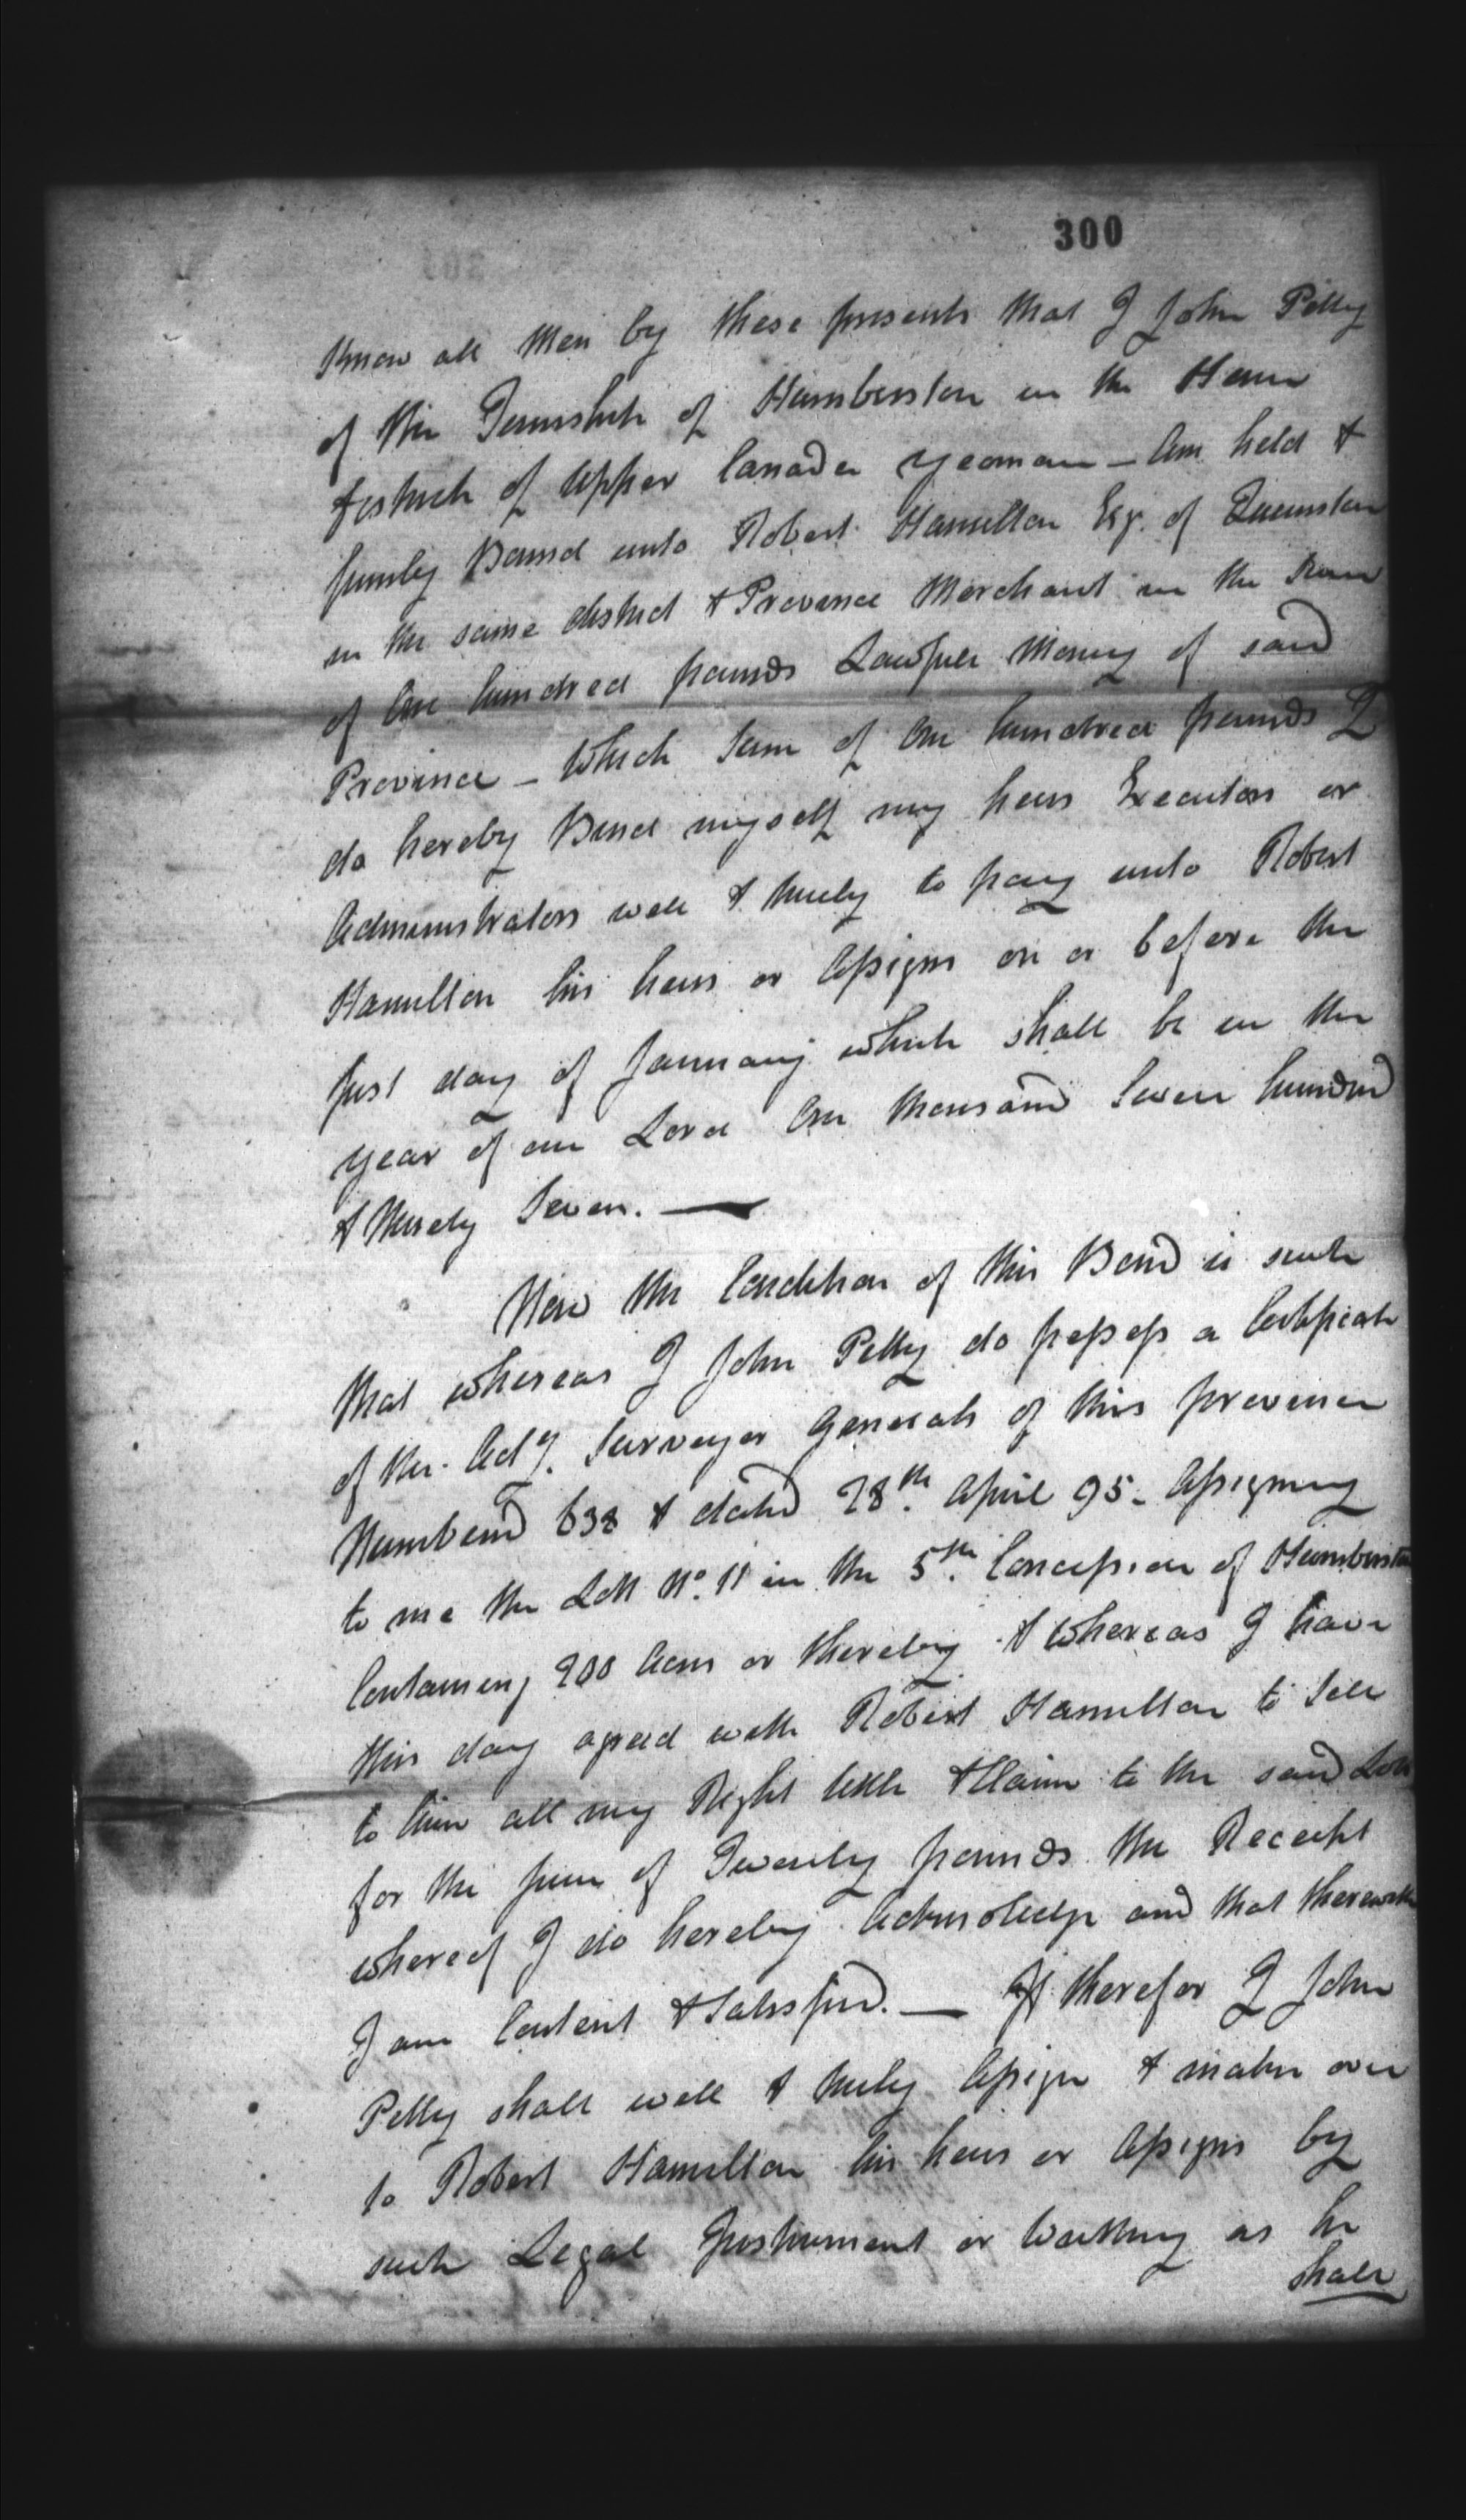 300
Know all Men by these presents that I John Petty
of the Township of Humberston in the Home
district of Upper Canada yeoman - Am held &
firmly Bound unto Robert Hamilton Esqr. of Queenston
in the same district & Province Merchant in the Sum
of One hundred pounds Lawfull Money of said
Province - Which Sum of One hundred pounds I
do hereby Bind myself my heirs Executors or
Administrators well & truely to pay unto Robert
Hamilton his heirs or Assigns on or before the
first day of January which shall be in the
year of our Lord One thousand Seven hundred
& Ninety Seven. —
Now the Condition of this Bond is such
that whereas I John Petty do possess a Certificate
of the Actg. Surveyor Generals of this province
Numbered 638 & dated 28th. April 95 - Assigning
to me the Lott No. 11 in the 5th. Concession of Humberston
Containing 200 Acres or thereby & Whereas I have
this day agreed with Robert Hamilton to Sell
to him all my Right title & Claim to the said Lott
for the sum of Twenty pounds the Receipt
whereof I do hereby Acknowledge and that therewith
I am Content & Satisfied. — If therefor I John
Petty shall well & truely Assign & make over
to Robert Hamilton his heirs or Assigns by
such Legal Instrument or Writting as he
shall